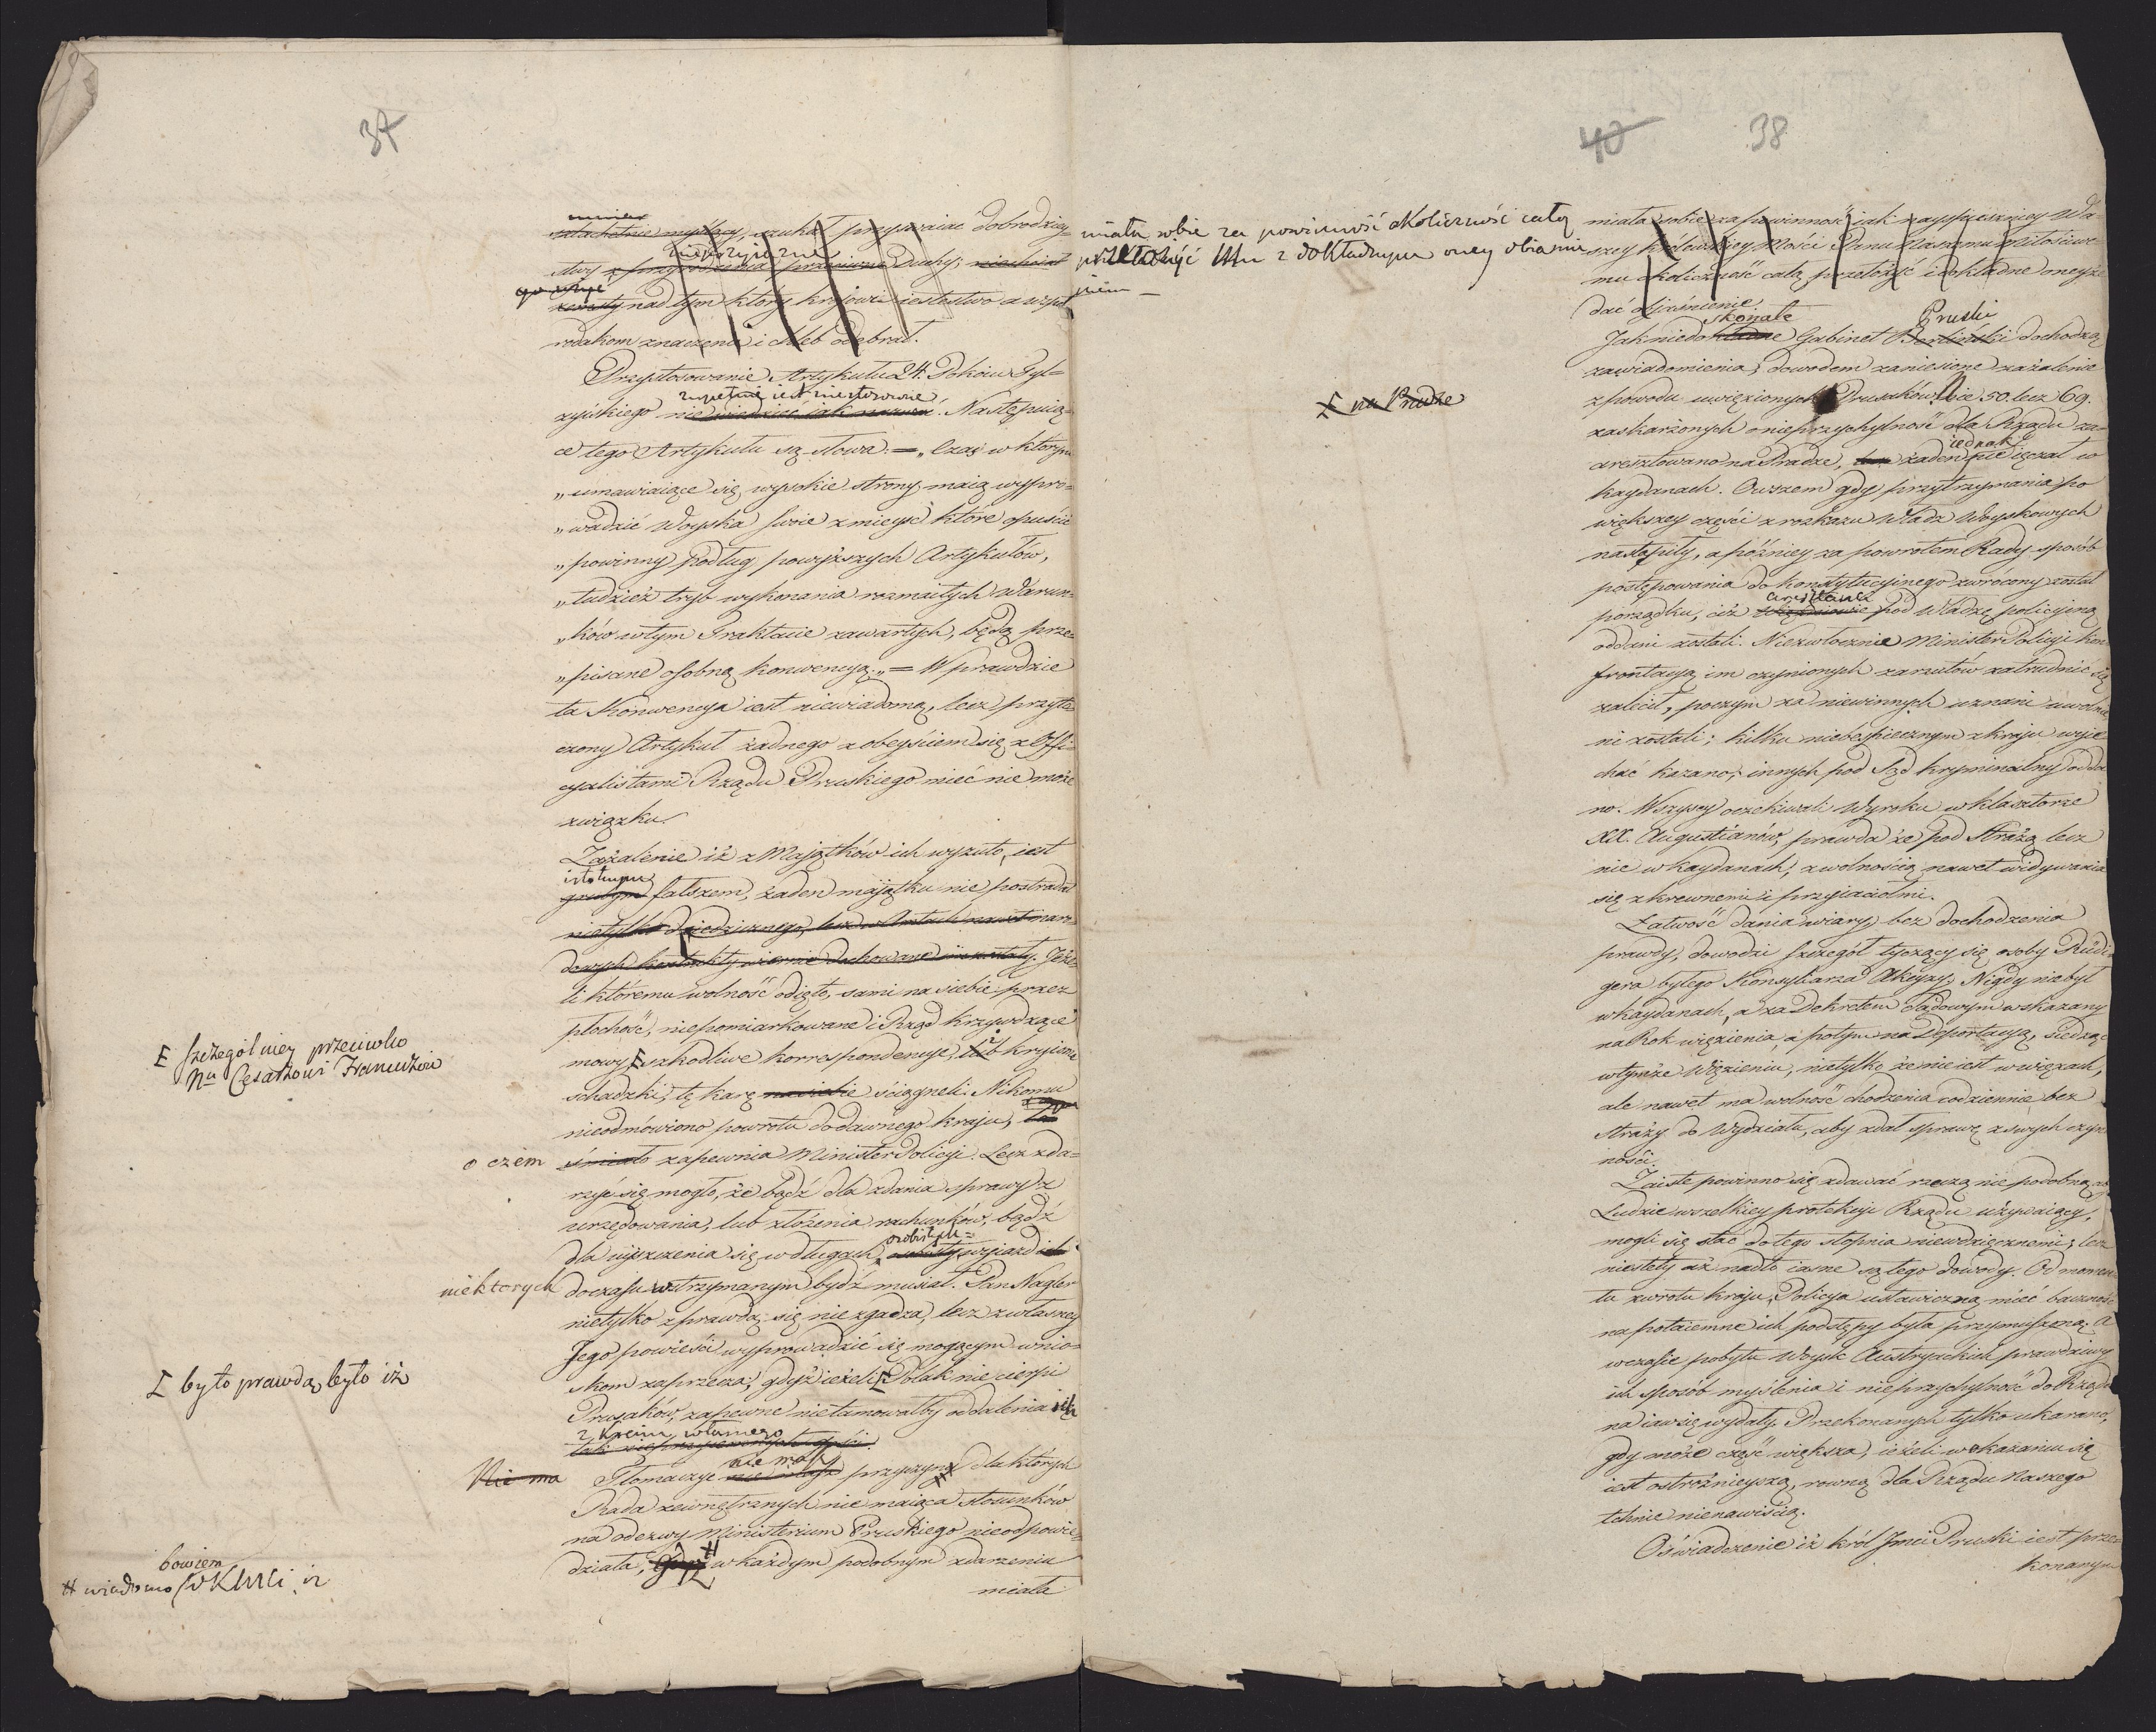 37
szlachetnie myślący, szukał przyzwoiać dobrodziey=
niepożyteczne
kwesty nad tym który krajowi iestestwo a współ
rodakom znaczenie i chleb odebrał.
Przystosowanie Artykułu 24. Pokoiu Tyl=
zupełnie iest niestosowne
zyckiego nie wiedzieć jak nazwać. Następuią=
ce tego Artykułu są słowa = „Czas w którym
„umawiaiące się wysokie strony maią wypro=
„wadzić Woyska swoie z mieysc które opuścić
„powinny podług powyższych Artykułów,
„tudzież tryb wykonania rozmaitych warun=
„ków wtym Traktacie zawartych, będą prze=
„pisane osobną konwencyą.„ = W prawdzie
ta Konwencya iest niewiadomą, lecz przyto=
czony Artykuł żadnego z obeyściem się z Offi=
cyalistami Rządu Pruskiego mieć nie może
związku.
Zażalenie iż z Majątków ich wyzuto, iest
istotnym
fałszem, żaden majątku nie postradał
nietylko dziedzicznego, lecz w Amtach nawet naro=
dowych kontrakty wiernie dochowane im zostały. Jeże=
li któremu wolność odięto, sami na siebie przez
płochość, niepomiarkowane i Rząd krzywdzące
mowy szkodliwe korrespondencye, lub kryione
schadzki, tę karę na siebie ściągneli. Nikomu
nieodmówiono powrotu do dawnego kraju,
śmiało zapewnia Minister Policyi. Lecz zda=
rzyć się mogło, że bądź dla zdania sprawy z
urzędowania, lub złożenia rachunków, bądź
osobistych =
dla uiszczenia się w długach, wyiazd ich
do czasu wstrzymanym bydź musiał. Pan Nagler
nietylko z prawdą się nie zgadza, lecz z własney
Jego powieści wyprowadzić się mogącym wnio=
skom zaprzecza, gdyż ieżeli Polak nie cierpi
Prusaków, zapewne nietamowałby oddalenia ich
z kraiu własnego
nie masz
Tłomaczyć przyczyny dla których
Rada zewnętrznych nie maiąca stosunków
na odezwy Ministerium Pruskiego nieodpowie=
działa, gdyż w każdym podobnym zdarzeniu
miała
E szczególniey przeciwko
Nu Cesarzowi Francuzów
o czém
niektorych
E było prawdą było iż
Nie ma
bowiem
# wiadomo WKMci iż
miała sobie za powinność okoliczność całą
przełożyć z dokładnym oney obiaśnie=
niem —
E na Pradze
40 38
miała sobie za powinność jak nayspieszniey Wa=
szey Królewskiey Mości Panu Naszemu Miłościwe=
mu okoliczność całą przełożyć i dokładne oneyże
dać objaśnienie.
skonałe Pruski
Jak niedokładne Gabinet Berliński dochodzą
zawiadomienia, dowodem zaniesione zażalenie
z powodu uwięzionych Prusaków. Nie 50. lecz 69.
zaskarżonych o nieprzychylność dla Rządu za=
iednak
aresztowano na Pradze, lecz żaden nie ięczał w
kaydanach. Owszem gdy przytrzymania po
większey części z rozkazu Władz Woyskowych
nastąpiły, a późniey za powrotem Rady sposób
postępowania do konstytucyinego zwrócony został
aresztanci
porządku, ciż więźniowie pod Władzę policyiną
oddani zostali. Niezwłocznie Minister Policyi kon=
frontacyą im czynionych zarzutów zatrudnić się
zalecił, poczym za niewinnych uznani uwolnie=
ni zostali; kilku niebezpiecznym z kraju wyie=
chać kazano, innych pod Sąd kryminalny odda=
no. Wszyscy oczekiwali Wyroku w klasztorze
XX. Augustianów, prawda że pod Strażą lecz
nie w kaydanach, z wolnością nawet widywania
się z krewnemi i przyiaciołmi.
Łatwość dania wiary bez dochodzenia
prawdy, dowodzi szczegół tyczący się osoby Rüdi=
gera byłego Konsyliarza Akcyzy. Nigdy nie był
w kaydanach, a za Dekretem Sądowym wskazany
na Rok więzienia, a potym na Deportacyą, siedząc
wtymże Więzieniu, nietylko że nie iest w więzach,
ale nawet ma wolność chodzenia codziennie bez
Straży do Wydziału, aby zdał sprawę z swych czyn=
ności.
Zaiste powinno się zdawać rzeczą nie podobną aby
Ludzie wszelkiey protekcyi Rządu używaiący,
mogli się stać do tego stopnia niewdzięcznemi; lecz
niestety aż nadto iasne są tego dowody. Od momen=
tu zwrotu kraju, Policya ustawiczną mieć baczność
na potaiemne ich podstępy była przymuszoną. A
w czasie pobytu Woysk Austryackich prawdziwy
ich sposób myślenia i nieprzychylność do Rządu
na iaw się wydały. Przekonanych tylko ukarano,
gdy może część większa, ieżeli w okazaniu się
iest ostrożnieyszą, równą dla Rządu Naszego
tchnie nienawiścią.
Oświadczenie iż król Jmci Pruski iest prze=
konanym